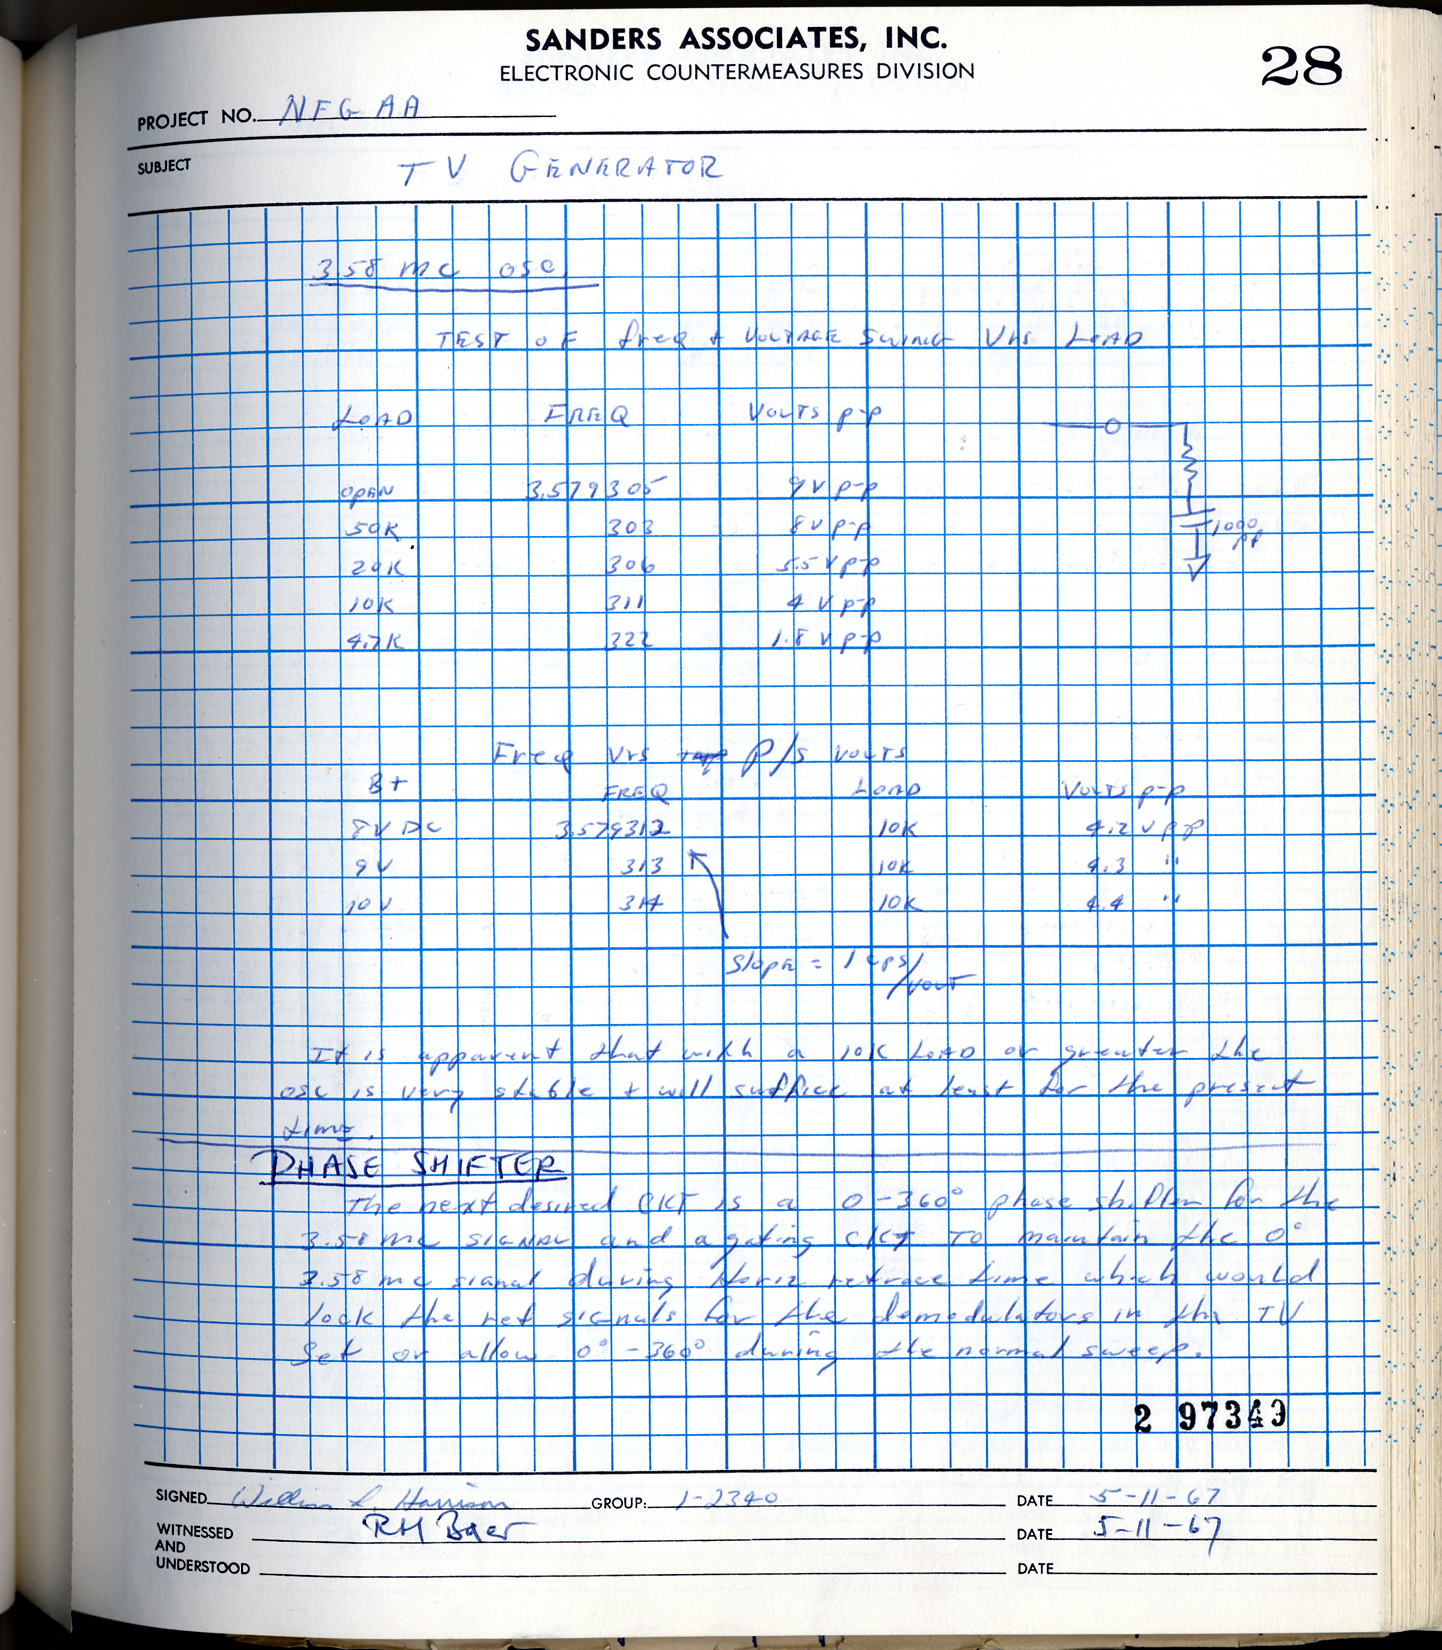 SANDERS ASSOCIATES, INC.
ELECTRONIC COUNTERMEASURES DIVISION
28
PROJECT NO. NFGAA
SUBJECT TV GENERATOR
3.58 mc osc
TEST OF freq + VOLTAGE SWING Vrs LOAD
LOAD FREQ VOLTS p-p
OPEN 3.579305 9V p-p
50K 303 8V p-p
20K 306 5.5 V p-p
10K 311 4 V p-p
4.7K 322 1.8 V p-p
1000 pf
Freq Vrs P/s VOLTS
B+ FREQ LOAD VOLTS p-p
8V DC 3.579312 10K 4.2 V p-p
9V 313 10K 4.3 "
10V 314 10K 4.4 "
SLOPE = 1 cps/VOLT
It is apparent that with a 10K LOAD or greater the
osc is very stable + will suffice at least for the present
time.
PHASE SHIFTER
The next desired CKT is a 0-360° phase shifter for the
3.58 mc SIGNAL and a gating CKT TO maintain the 0°
3.58 mc signal during Horiz retrace time which would
lock the ref signals for the demodulators in the TV
Set or allow 0°-360° during the normal sweep.
2 97349
SIGNED William L. Harrison GROUP: 1-2340 DATE 5-11-67
WITNESSED AND UNDERSTOOD RH Baer DATE 5-11-67
DATE